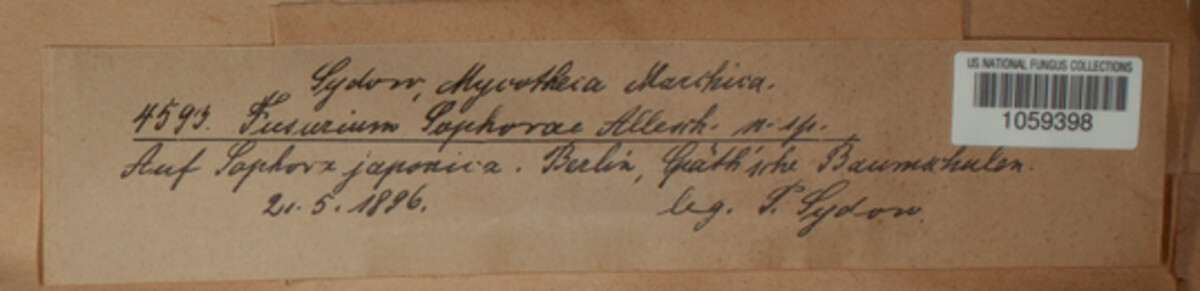 Sydow, Mycotheca Marchica.
4593. Fusarium Sophorae Allesch. n. sp.
Auf Sophora japonica. Berlin, Späth'sche Baumschulen.
5. 1896. leg. P. Sydow.
US NATIONAL FUNGUS COLLECTIONS
1059398